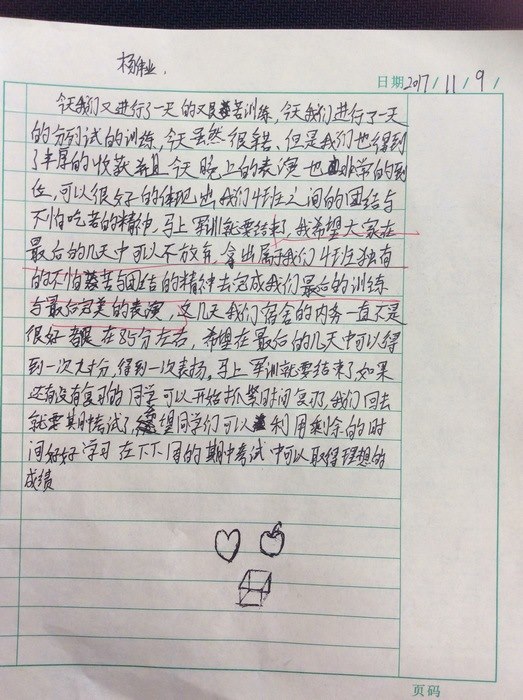 杨伟业.
日期 2017/11/9/
今天我们又进行了一天的艰苦训练,今天我们进行了一天
的分列试的训练,今天虽然很错、但是我们也得到
了丰厚的收获并且今天晚上的表演也非常的到
位,可以很好的体现出我们班之间的团结与
不怕吃苦的精神,马上军训就要结束了,我希望大家在
最后的几天中可以不放弃,拿出属于我们班独有
的不怕苦与团结的精神去完成我们最后的训练
与最后完美的表演,这几天我们宿舍的内务一直不是
很好都在85分左右,希望在最后的几天中可以得
到一次大扮,得到一次表扬,马上军训就要结束了如果
还有没有复习的同学可以开始抓紧时间复习,我们回去
就要期中考试了,希望同学们可以利用剩余的时
间好好学习在下下周的期中考试中可以取得理想的
成绩
页码